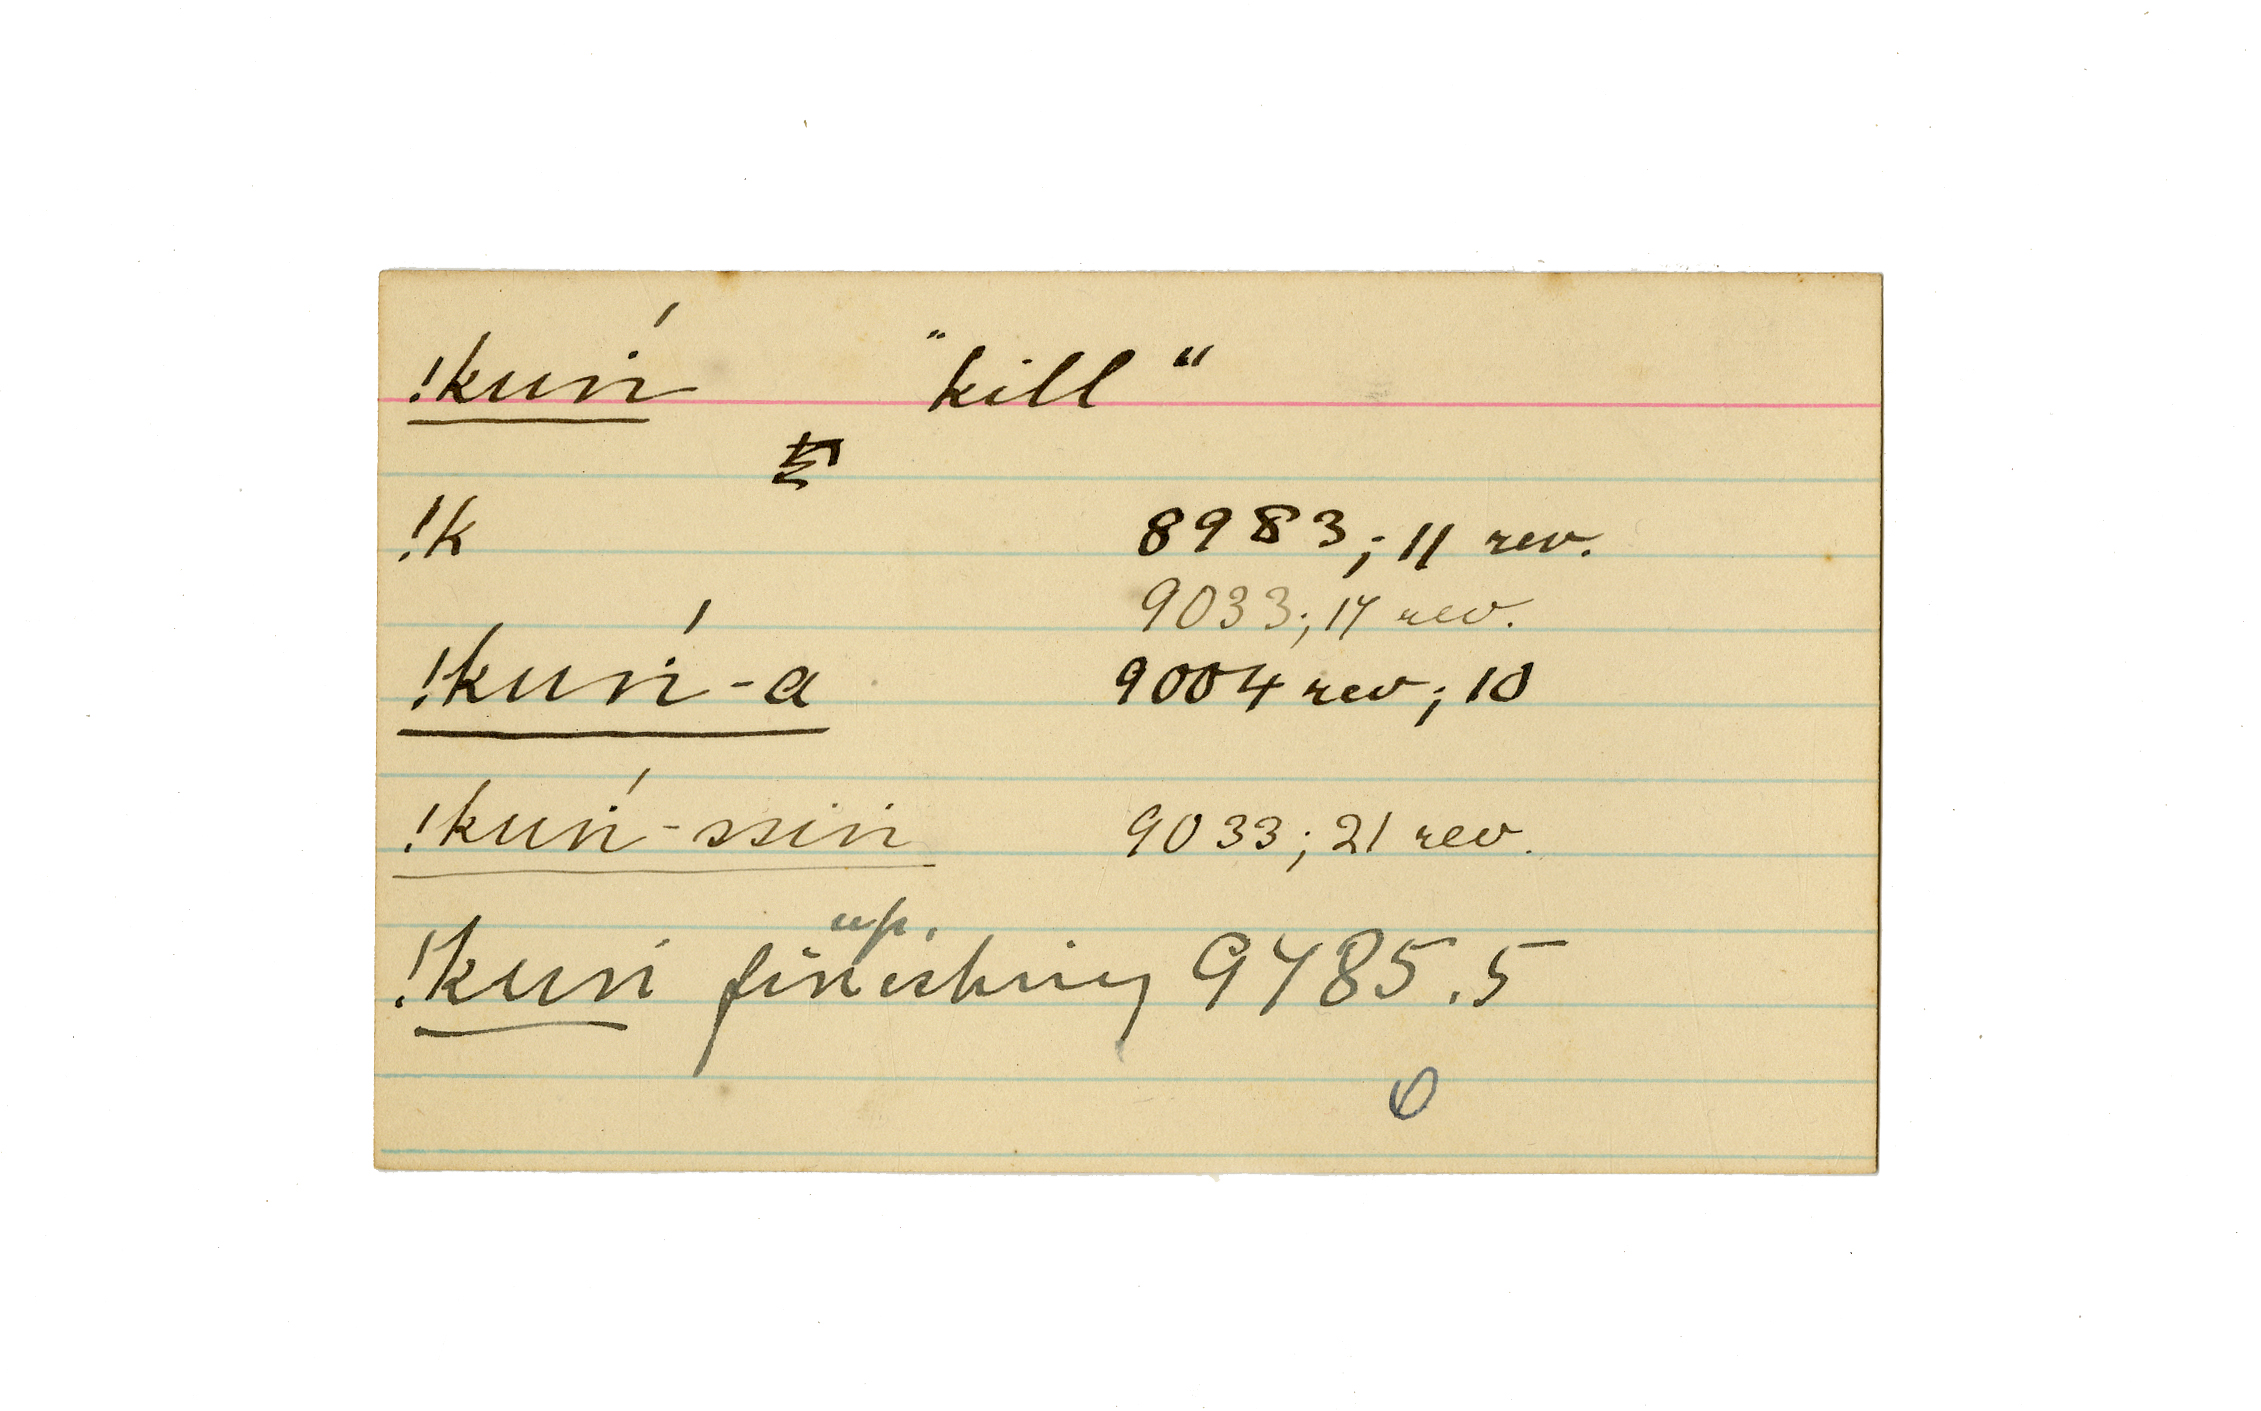 !kuṅ´ "kill"
!k 8983; 11 rev.
9033; 17 rev.
!kuṅ´-a 9004 rev; 10
!kuṅ´-ssiṅ 9033; 21 rev.
up.
!kuṅ finishing 9485.5